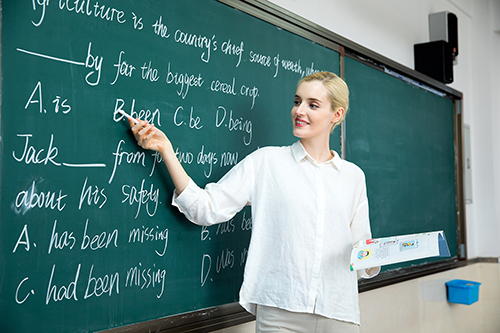 Agriculture is the country's chief source of wealth, wh
____by far the biggest cereal crop.
A. is B. been C. be D. being
Jack____from for two days now
about his safety.
A. has been missing B. has
C. had been missing D. was